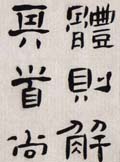 體則解
首尚